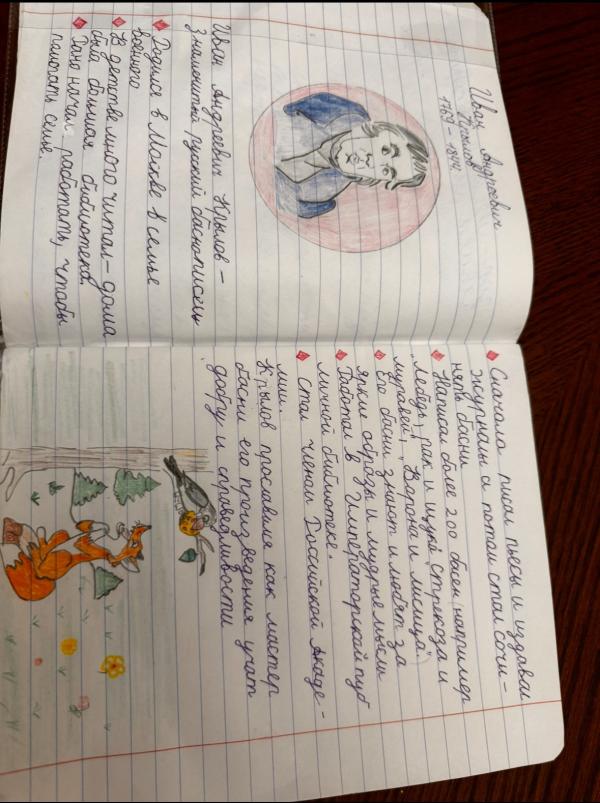 Иван Андреевич
Крылов
1769 – 1844
Иван Андреевич Крылов –
знаменитый русский баснописец
Родился в Москве в семье
военного
В детстве много читал – дома
была большая библиотека.
Рано начал работать, чтобы
помогать семье.
Сначала писал пьесы и издавал
журналы а потом стал сочи-
нять басни
Написал более 200 басен (например
„Лебедь, рак и щука", „Стрекоза и
муравей", „Ворона и лисица")
Его басни знают и любят за
яркие образы и мудрые мысли
Работал в Императорской пуб
личной библиотеке.
Стал членом Российской Акаде-
мии.
Крылов прославился как мастер
басни его произведения учат
добру и справедливости